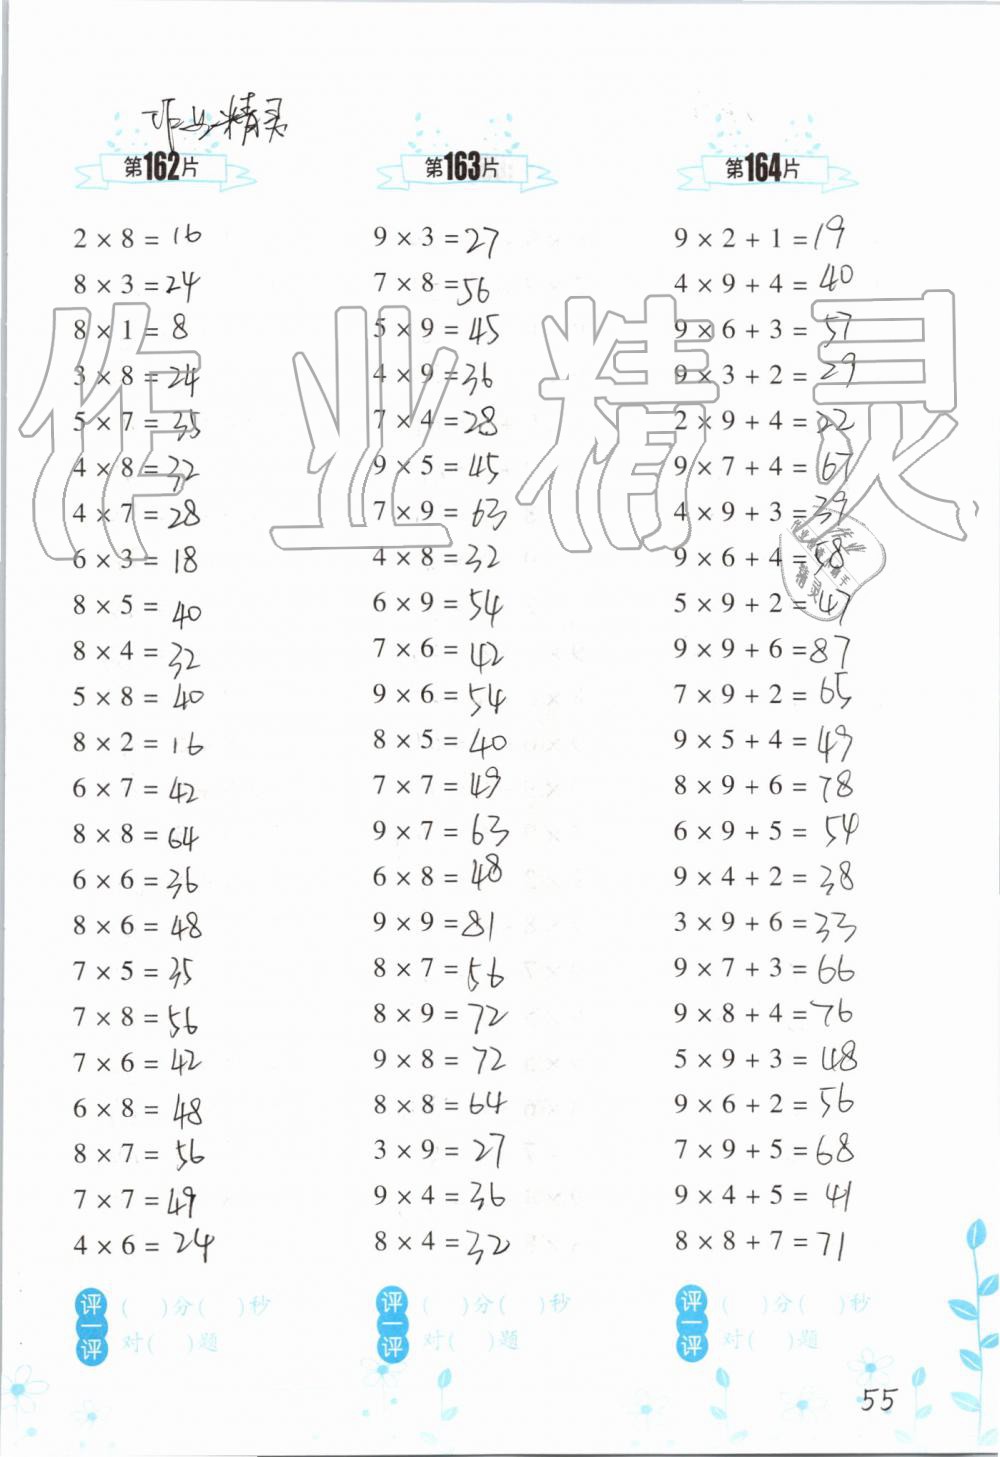 作业精灵
第162片
2 × 8 = 16
8 × 3 = 24
8 × 1 = 8
3 × 8 = 24
5 × 7 = 35
4 × 8 = 32
4 × 7 = 28
6 × 3 = 18
8 × 5 = 40
8 × 4 = 32
5 × 8 = 40
8 × 2 = 16
6 × 7 = 42
8 × 8 = 64
6 × 6 = 36
8 × 6 = 48
7 × 5 = 35
7 × 8 = 56
7 × 6 = 42
6 × 8 = 48
8 × 7 = 56
7 × 7 = 49
4 × 6 = 24
评一评
( )分( )秒
对( )题
第163片
9 × 3 = 27
7 × 8 = 56
5 × 9 = 45
4 × 9 = 36
7 × 4 = 28
9 × 5 = 45
7 × 9 = 63
4 × 8 = 32
6 × 9 = 54
7 × 6 = 42
9 × 6 = 54
8 × 5 = 40
7 × 7 = 49
9 × 7 = 63
6 × 8 = 48
9 × 9 = 81
8 × 7 = 56
8 × 9 = 72
9 × 8 = 72
8 × 8 = 64
3 × 9 = 27
9 × 4 = 36
8 × 4 = 32
评一评
( )分( )秒
对( )题
第164片
9 × 2 + 1 = 19
4 × 9 + 4 = 40
9 × 6 + 3 = 57
9 × 3 + 2 = 29
2 × 9 + 4 = 22
9 × 7 + 4 = 67
4 × 9 + 3 = 39
9 × 6 + 4 = 58
5 × 9 + 2 = 47
9 × 9 + 6 = 87
7 × 9 + 2 = 65
9 × 5 + 4 = 49
8 × 9 + 6 = 78
6 × 9 + 5 = 54
9 × 4 + 2 = 38
3 × 9 + 6 = 33
9 × 7 + 3 = 66
9 × 8 + 4 = 76
5 × 9 + 3 = 48
9 × 6 + 2 = 56
7 × 9 + 5 = 68
9 × 4 + 5 = 41
8 × 8 + 7 = 71
评一评
( )分( )秒
对( )题
作业精灵
55